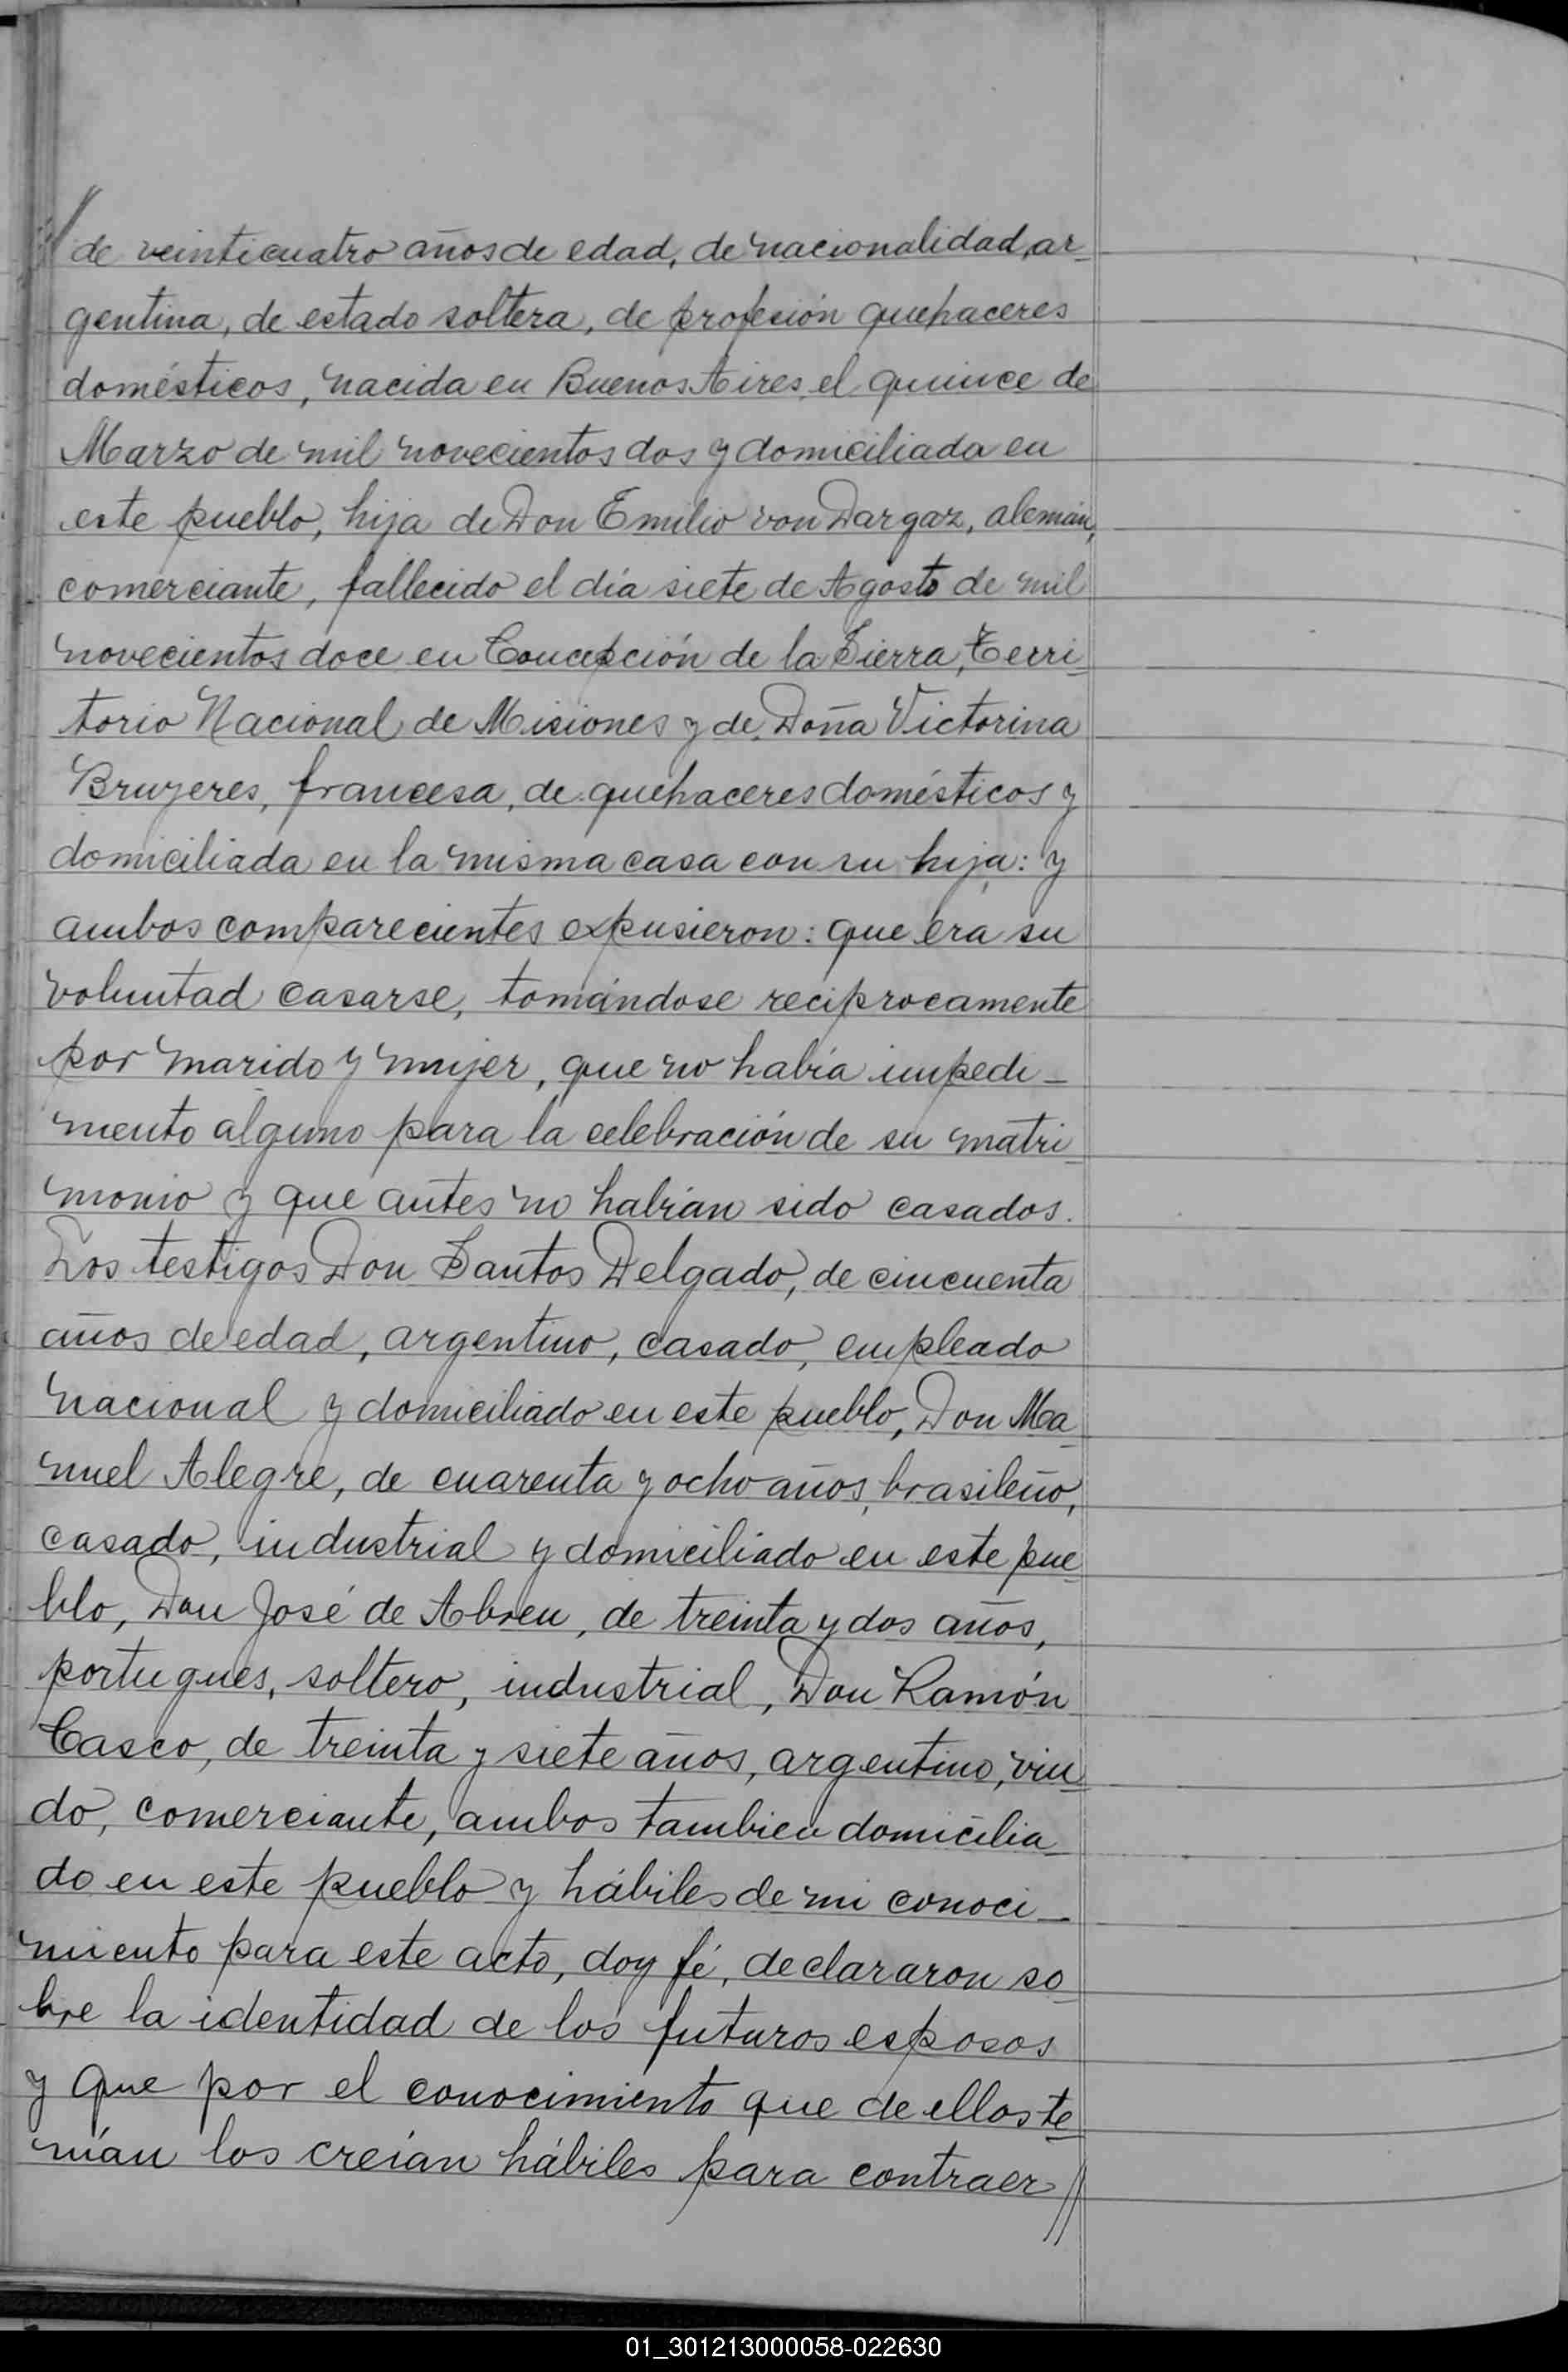 // de veinticuatro años de edad, de nacionalidad ar-
gentina, de estado soltera, de profesión quehaceres
domésticos, nacida en Buenos Aires, el quince de
Marzo de mil novecientos dos y domiciliada en
este pueblo, hija de Don Emilio von Dargaz, alemán,
comerciante, fallecido el día siete de Agosto de mil
novecientos doce en Concepción de la Sierra, Terri-
torio Nacional de Misiones y de Doña Victorina
Bruyeres, francesa, de quehaceres domésticos y
domiciliada en la misma casa con su hija: y
ambos comparecientes expusieron: que era su
voluntad casarse, tomándose reciprocamente
por marido y mujer, que no había impedi-
mento alguno para la celebración de su matri-
monio y que antes no habían sido casados.
Los testigos Don Santos Delgado, de cincuenta
años de edad, argentino, casado, empleado
nacional y domiciliado en este pueblo, Don Ma-
nuel Alegre, de cuarenta y ocho años, brasileño,
casado, industrial y domiciliado en este pue-
blo, Don José de Abreu, de treinta y dos años,
portugues, soltero, industrial, Don Ramón
Casco, de treinta y siete años, argentino, viu-
do, comerciante, ambos tambien domicilia-
do en este pueblo y hábiles de mi conoci-
miento para este acto, doy fé, declararon so-
bre la identidad de los futuros esposos
y que por el conocimiento que de ellos te-
nían los creían hábiles para contraer //
01_301213000058-022630